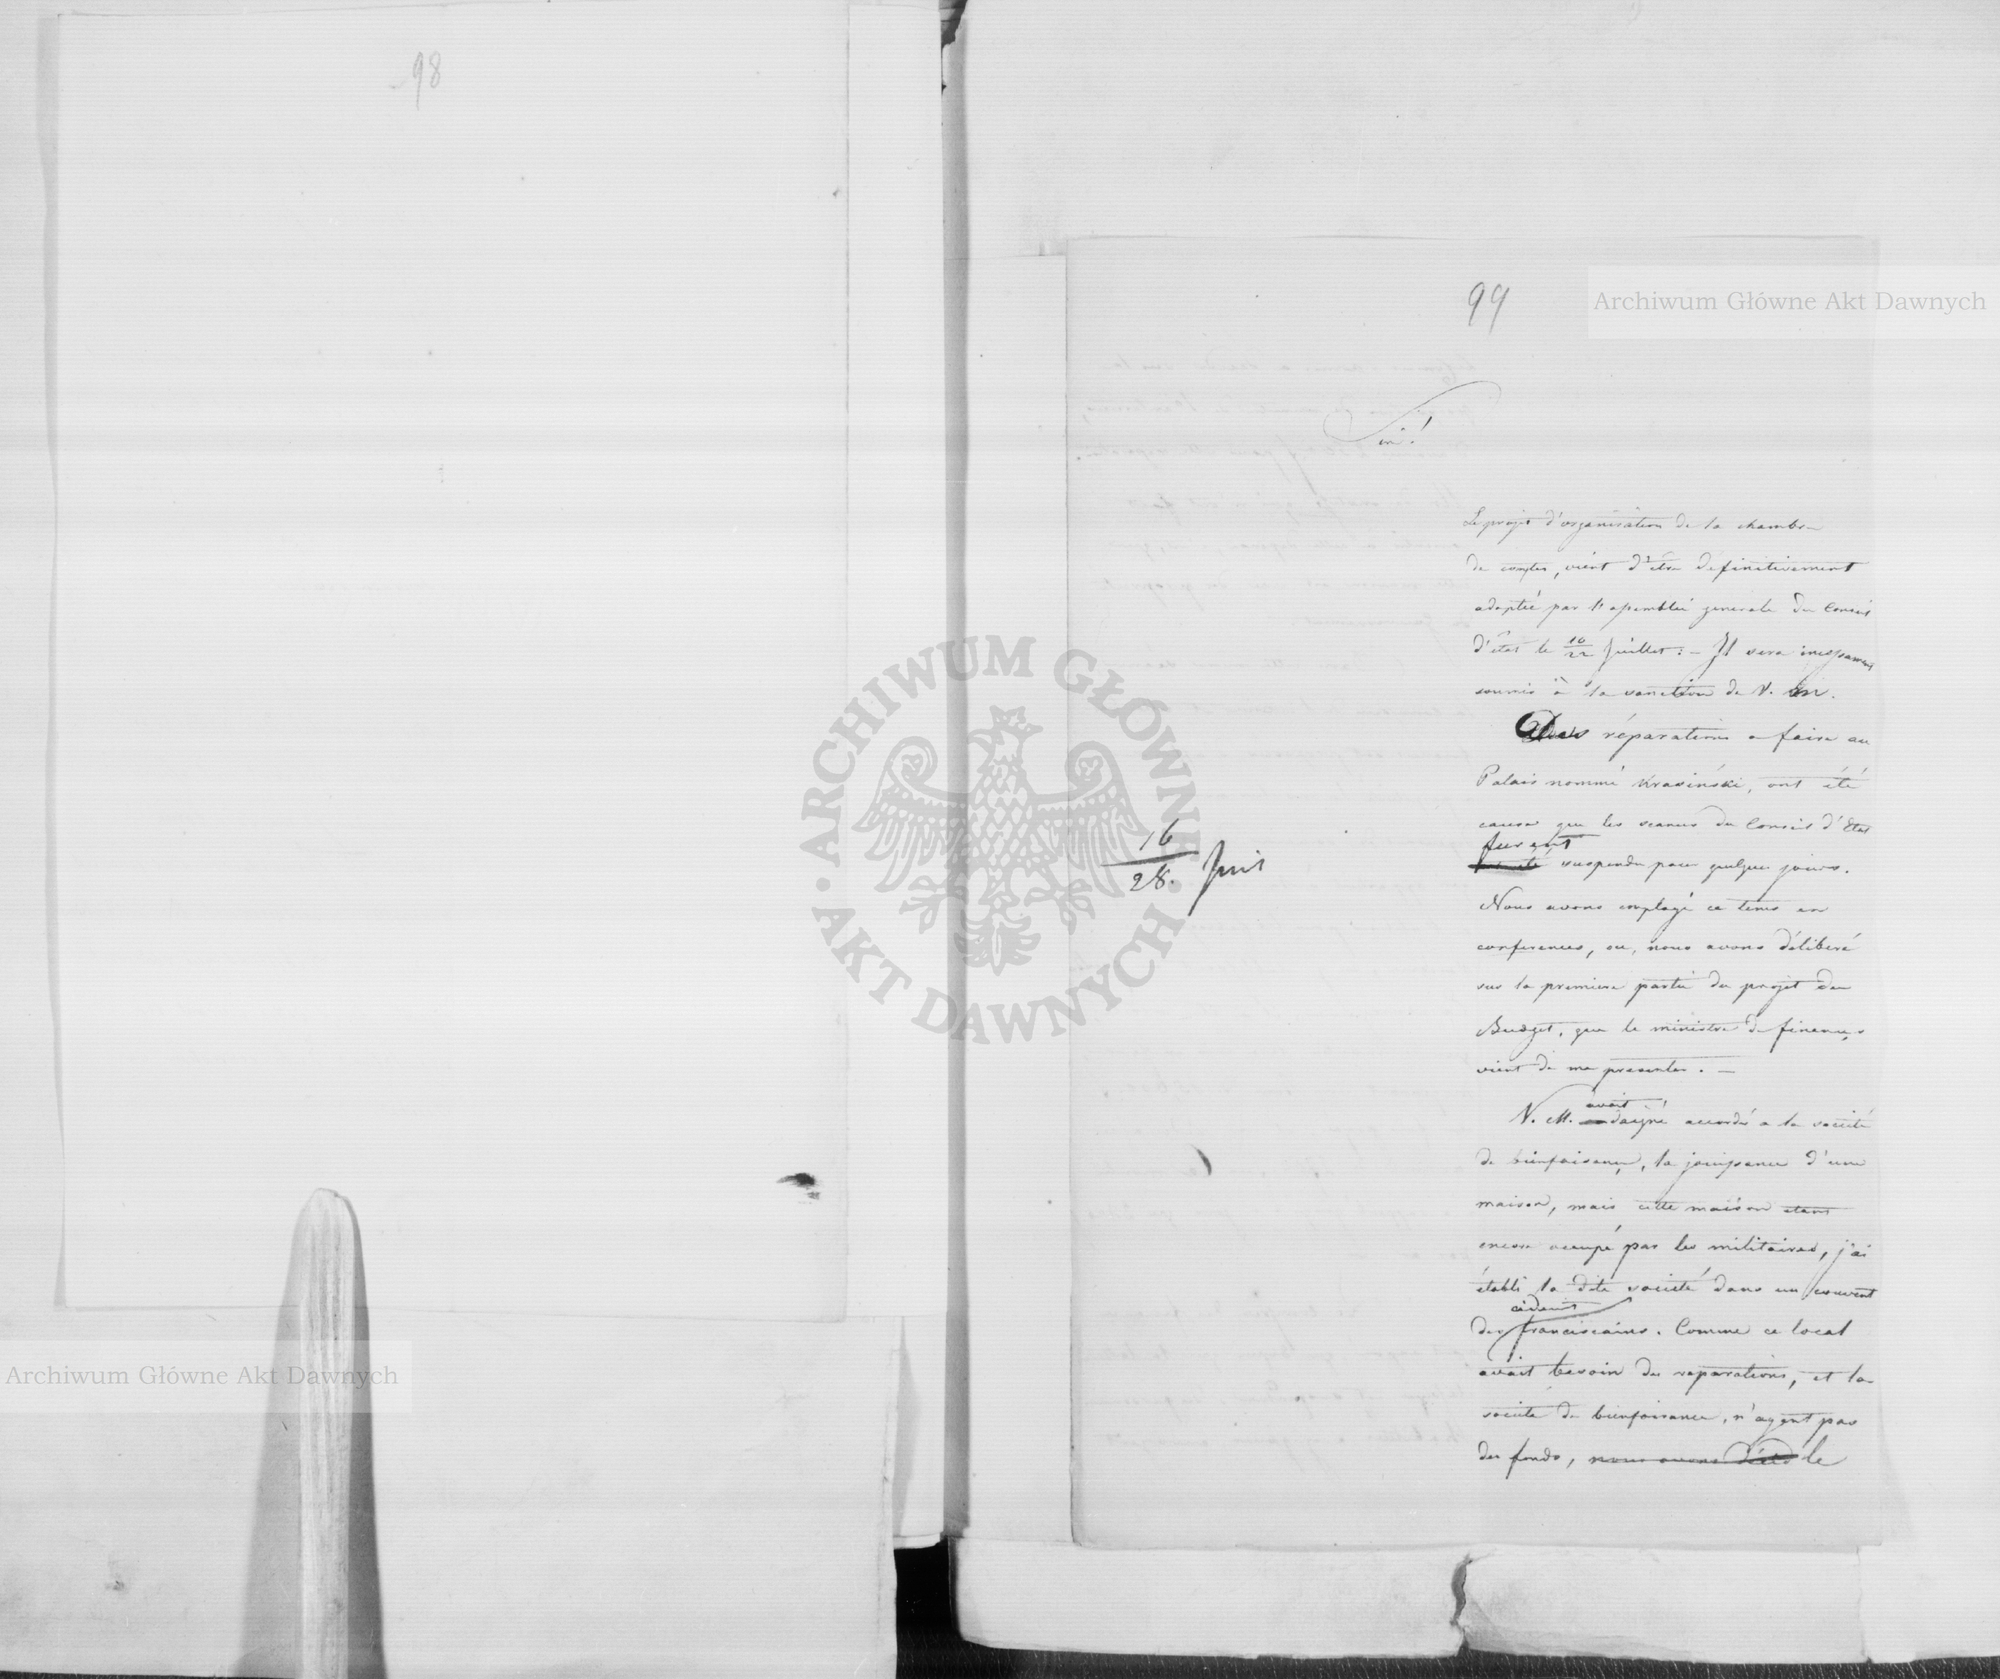 98
99
Archiwum Główne Akt Dawnych
Sire!
Le projet d'organisation de la chambre
de comptes, vient d'être définitivement
adoptée par l'assemblée generale du Conseil
d'état le 10/22 Juillet: – Il sera incessament
soumis à la sanction de V. M.
Des réparations a faire au
Palais nommé Krasiński, ont été
cause que les seances du Conseil d'Etat
furent
suspendu pour quelques jours.
16/28. Juin
Nous avons employé ce tems en
conferences, ou, nous avons délibéré
sur la premiere partie du projet du
Budget, que le ministre de finances
vient de me presenter. –
avait
V. M. daigné accorder a la societé
de bienfaisance, la jouissance d'une
maison, mais cette maison etant
encore occupé par les militaires, j'ai
établi la dite societé dans un couvent
cidevant
des franciscains. Comme ce local
avait besoin des reparations, et la
societé de bienfaisance, n'ayent pas
des fonds, nous avons décidé le
Archiwum Główne Akt Dawnych
ARCHIWUM GŁÓWNE AKT DAWNYCH